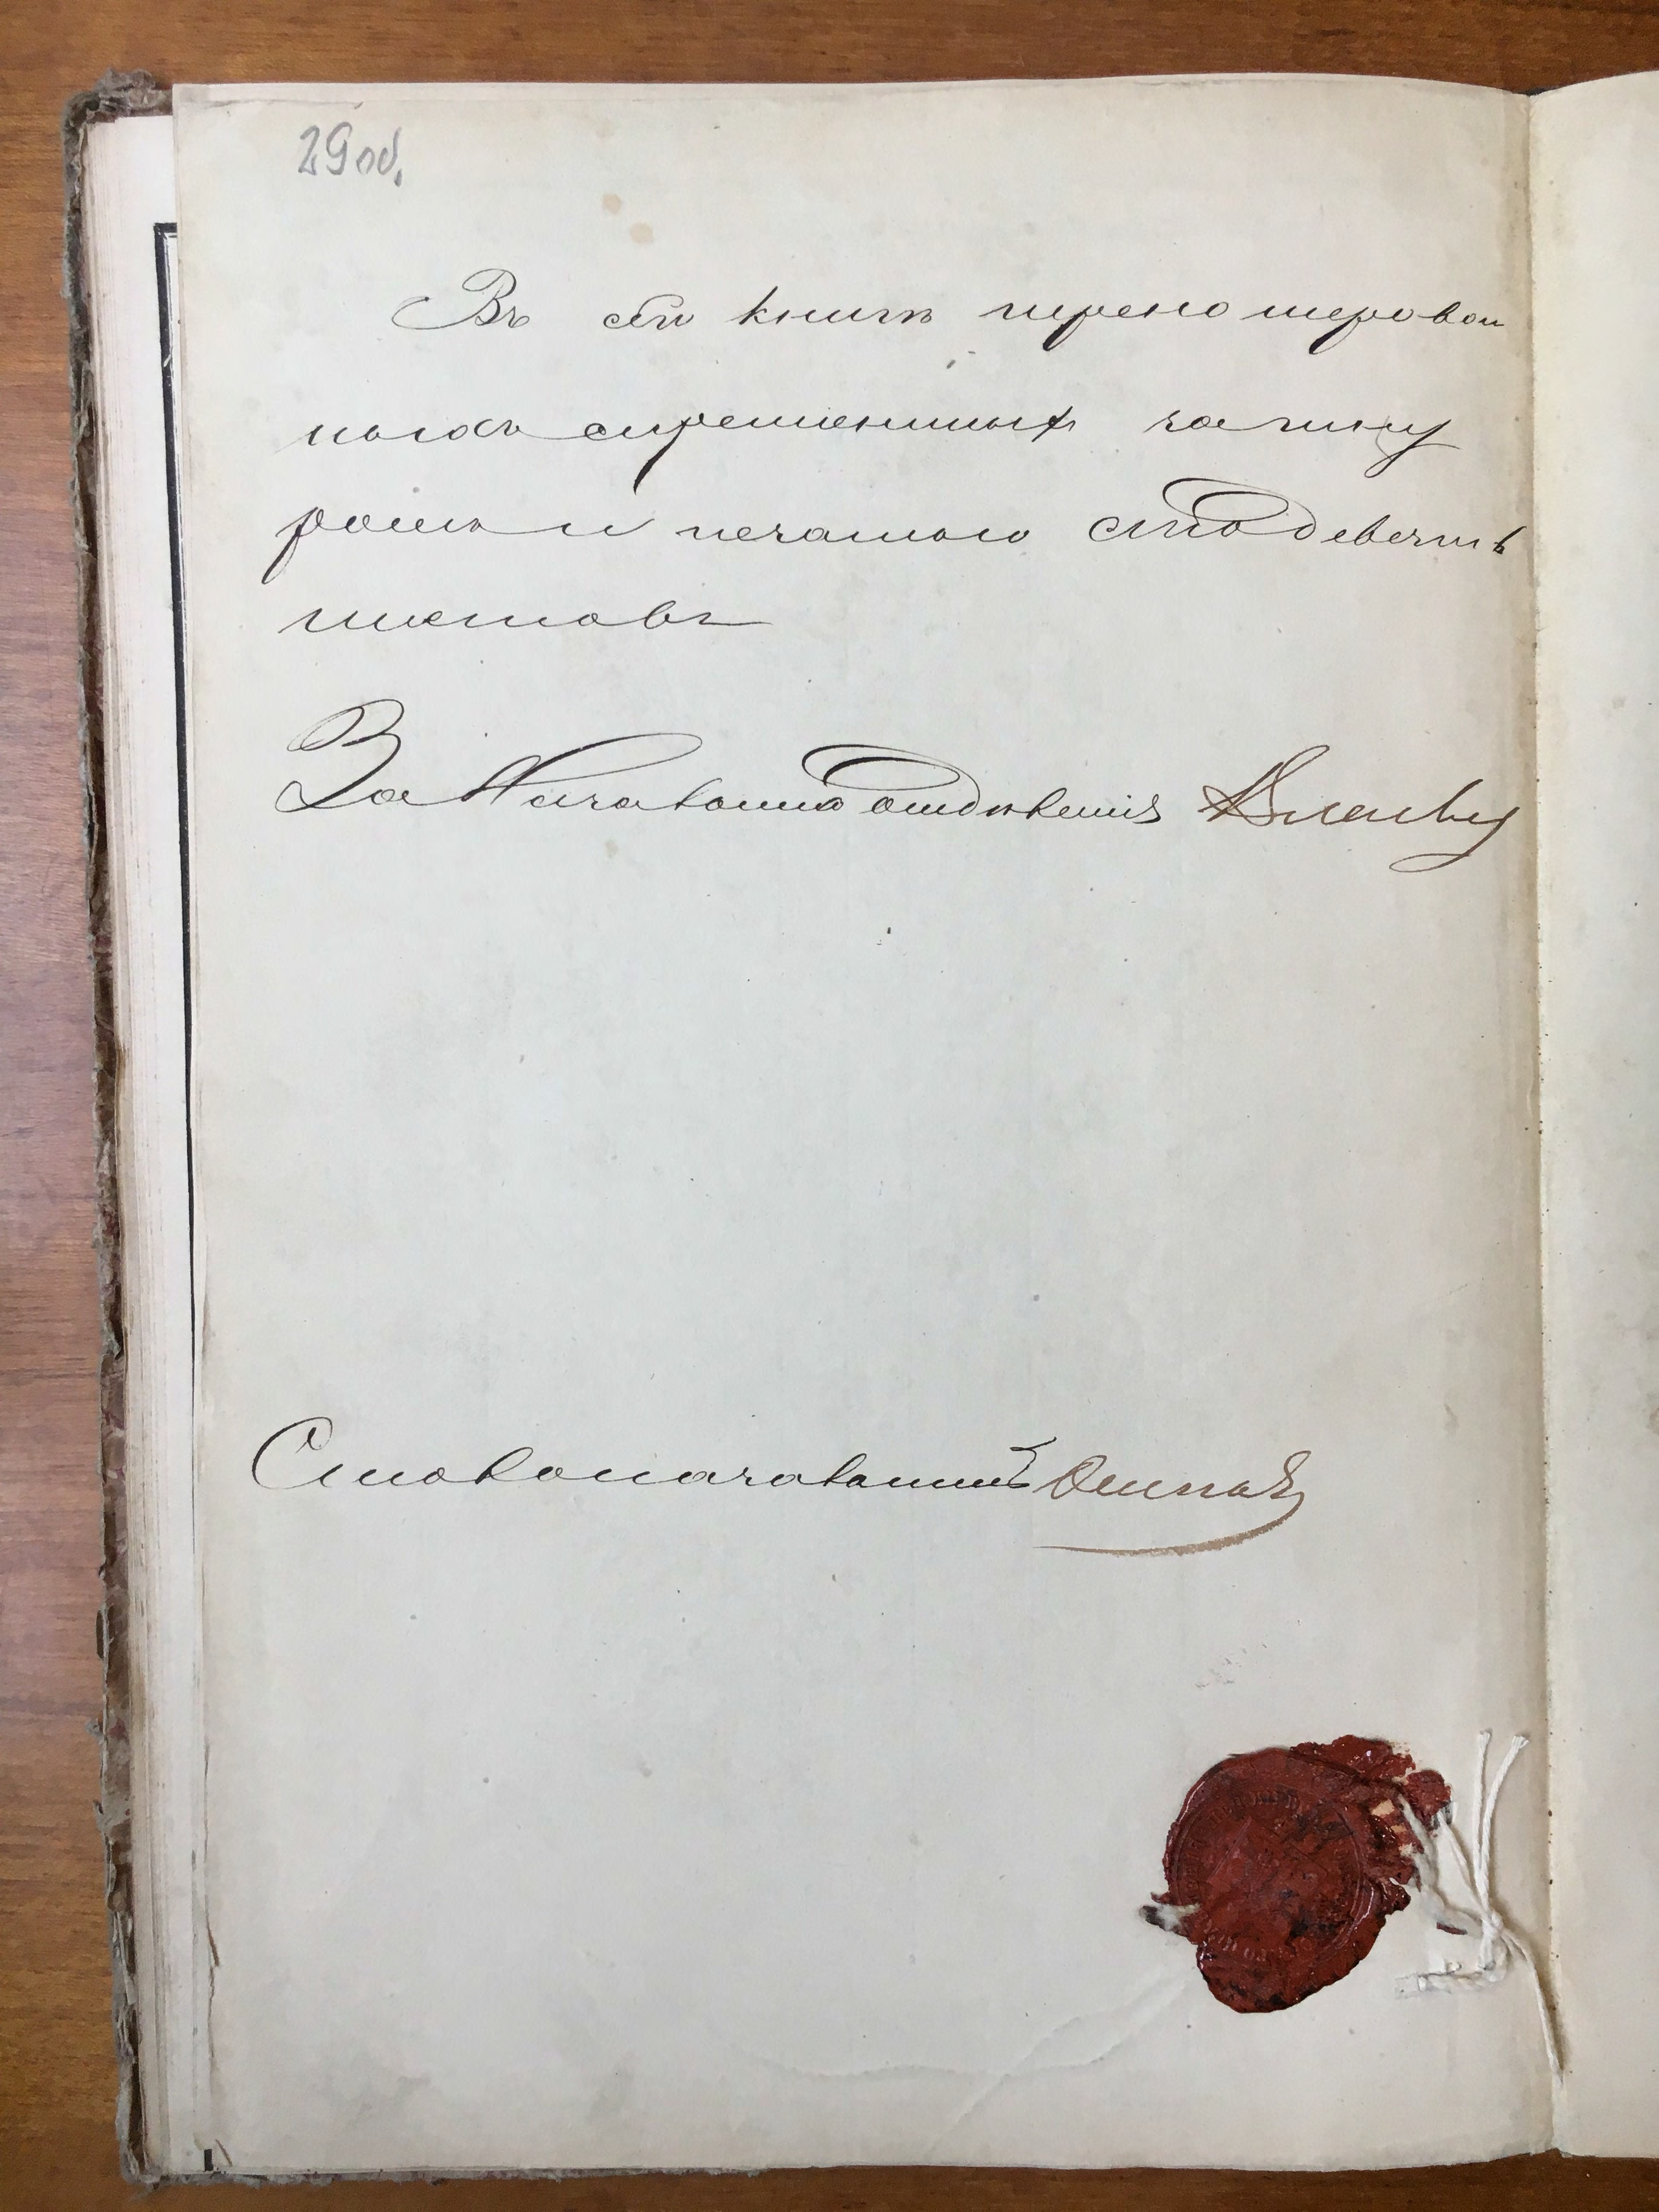 29 об.
Въ сей книгѣ перенумерован
ныхъ скрепленныхъ зашну
ромъ и печатью сто девять
листовъ
За Начальника отдѣленія
Столоначальникъ